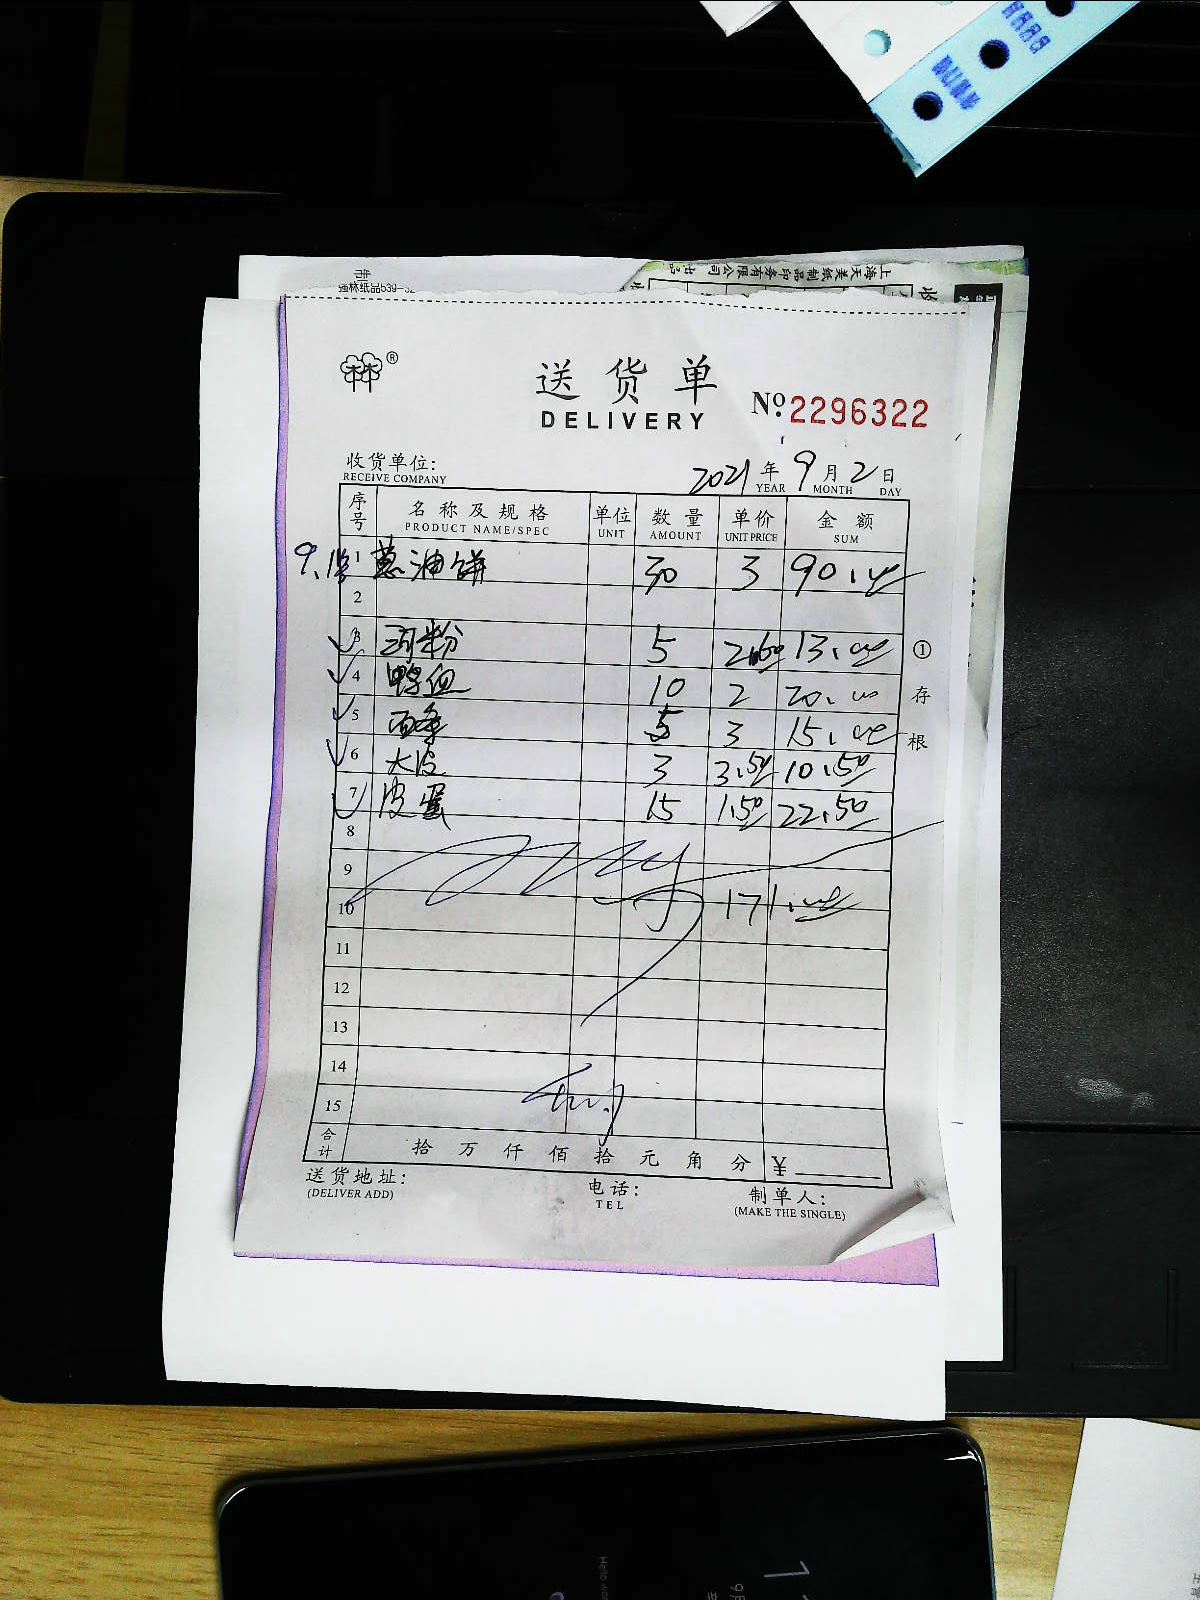 上海天美纸制品印务有限公司 出品
®
送货单
DELIVERY
No. 2296322
收货单位:
RECEIVE COMPANY
2021 年 9 月 2 日
YEAR MONTH DAY
序号 名称及规格 单位 数量 单价 金额
PRODUCT NAME/SPEC UNIT AMOUNT UNIT PRICE SUM
1 葱油饼 30 3 90.00
2
3 河粉 5 2.60 13.00
4 鸭血 10 2 20.00
5 面条 5 3 15.00
6 大皮 3 3.50 10.50
7 皮蛋 15 1.50 22.50
8
9
10 171.00
11
12
13
14
15
合计 拾 万 仟 佰 拾 元 角 分 ¥
①存根
送货地址: 电话: 制单人:
(DELIVER ADD) TEL (MAKE THE SINGLE)